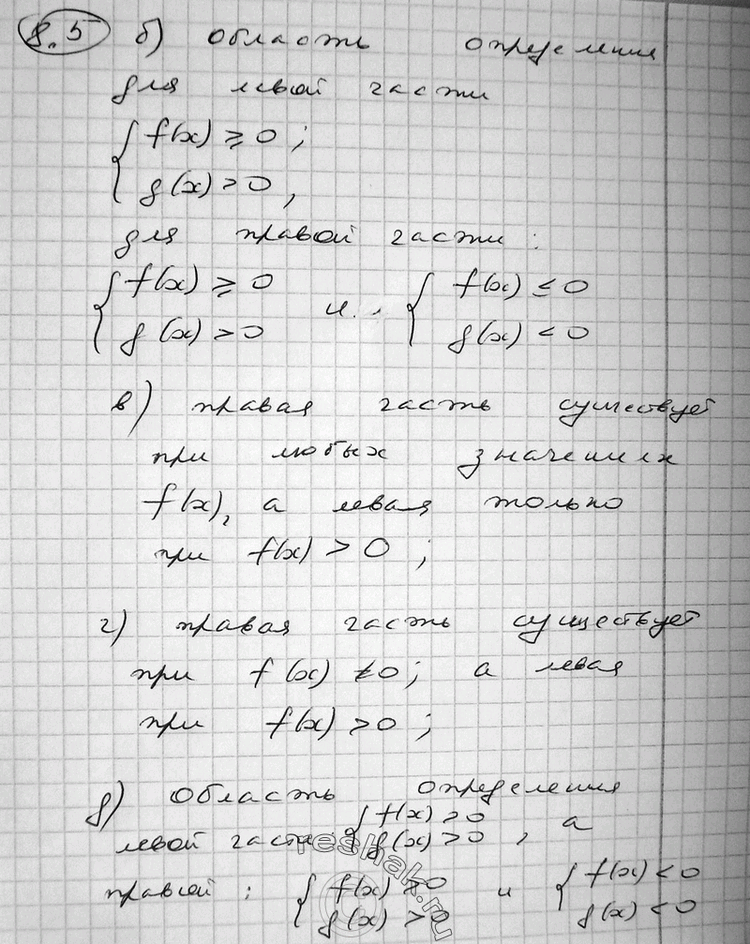 8.5 б) область определения
для левой части
{ f(x) ≥ 0 ;
g(x) > 0 ,
для правой части :
{ f(x) ≥ 0 и { f(x) ≤ 0
g(x) > 0 g(x) < 0
в) правая часть существует
при любых значениях
f(x), а левая только
при f(x) > 0 ;
г) правая часть существует
при f(x) ≠ 0 ; а левая
при f(x) > 0 ;
д) область определения
левой части { f(x) > 0
g(x) > 0 , а
правой : { f(x) > 0 и { f(x) < 0
g(x) > 0 g(x) < 0
reshak.ru